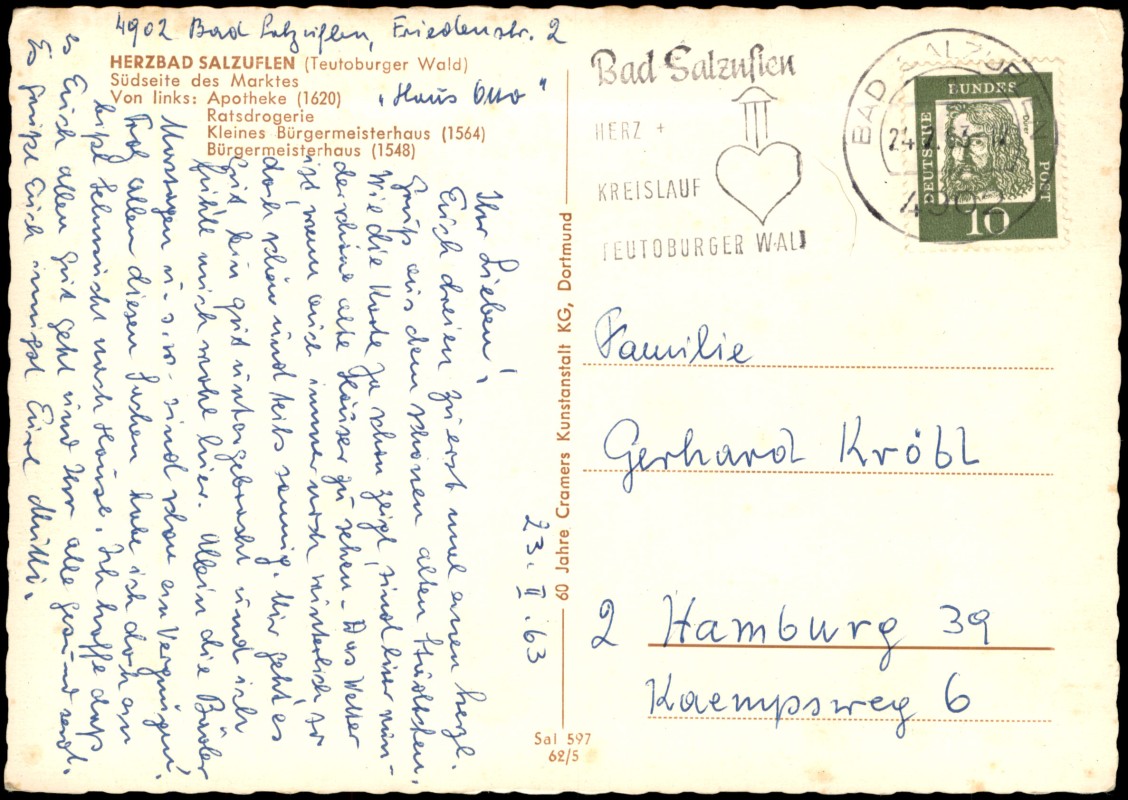 4902 Bad Salzuflen, Friedenstr. 2
„Haus Otto"
HERZBAD SALZUFLEN (Teutoburger Wald)
Südseite des Marktes
Von links: Apotheke (1620)
Ratsdrogerie
Kleines Bürgermeisterhaus (1564)
Bürgermeisterhaus (1548)
23. II. 63
Ihr Lieben!
Euch dreien zuerst mal einen herzl.
Gruß aus dem schönen alten Städtchen,
Wie die Karte ja schon zeigt, sind hier
der schöne alte Häuser zu sehen. Das Wetter
ist, wenn auch immer noch winterlich so
doch schön und teils sonnig. Mir geht es
gut bin gut untergebracht und ich
fühle mich wohl hier. Allein die Bäder
Massagen u.s.w. sind schon ein Vergnügen.
Trotz allen diesen Sachen habe ich doch
Sehnsucht nach Hause. Ich hoffe daß
es Euch allen gut geht und Ihr alle gesund seid.
Es grüßt Euch innigst Eure Mutti.
60 Jahre Cramers Kunstanstalt KG, Dortmund
Sal 597
62/5
Bad Salzuflen
HERZ +
KREISLAUF
TEUTOBURGER WALD
BAD SALZUFLEN
4902
DEUTSCHE
BUNDES
POST
Dürer
10
Familie
Gerhard Kröbl
2 Hamburg 39
Kaempsweg 6